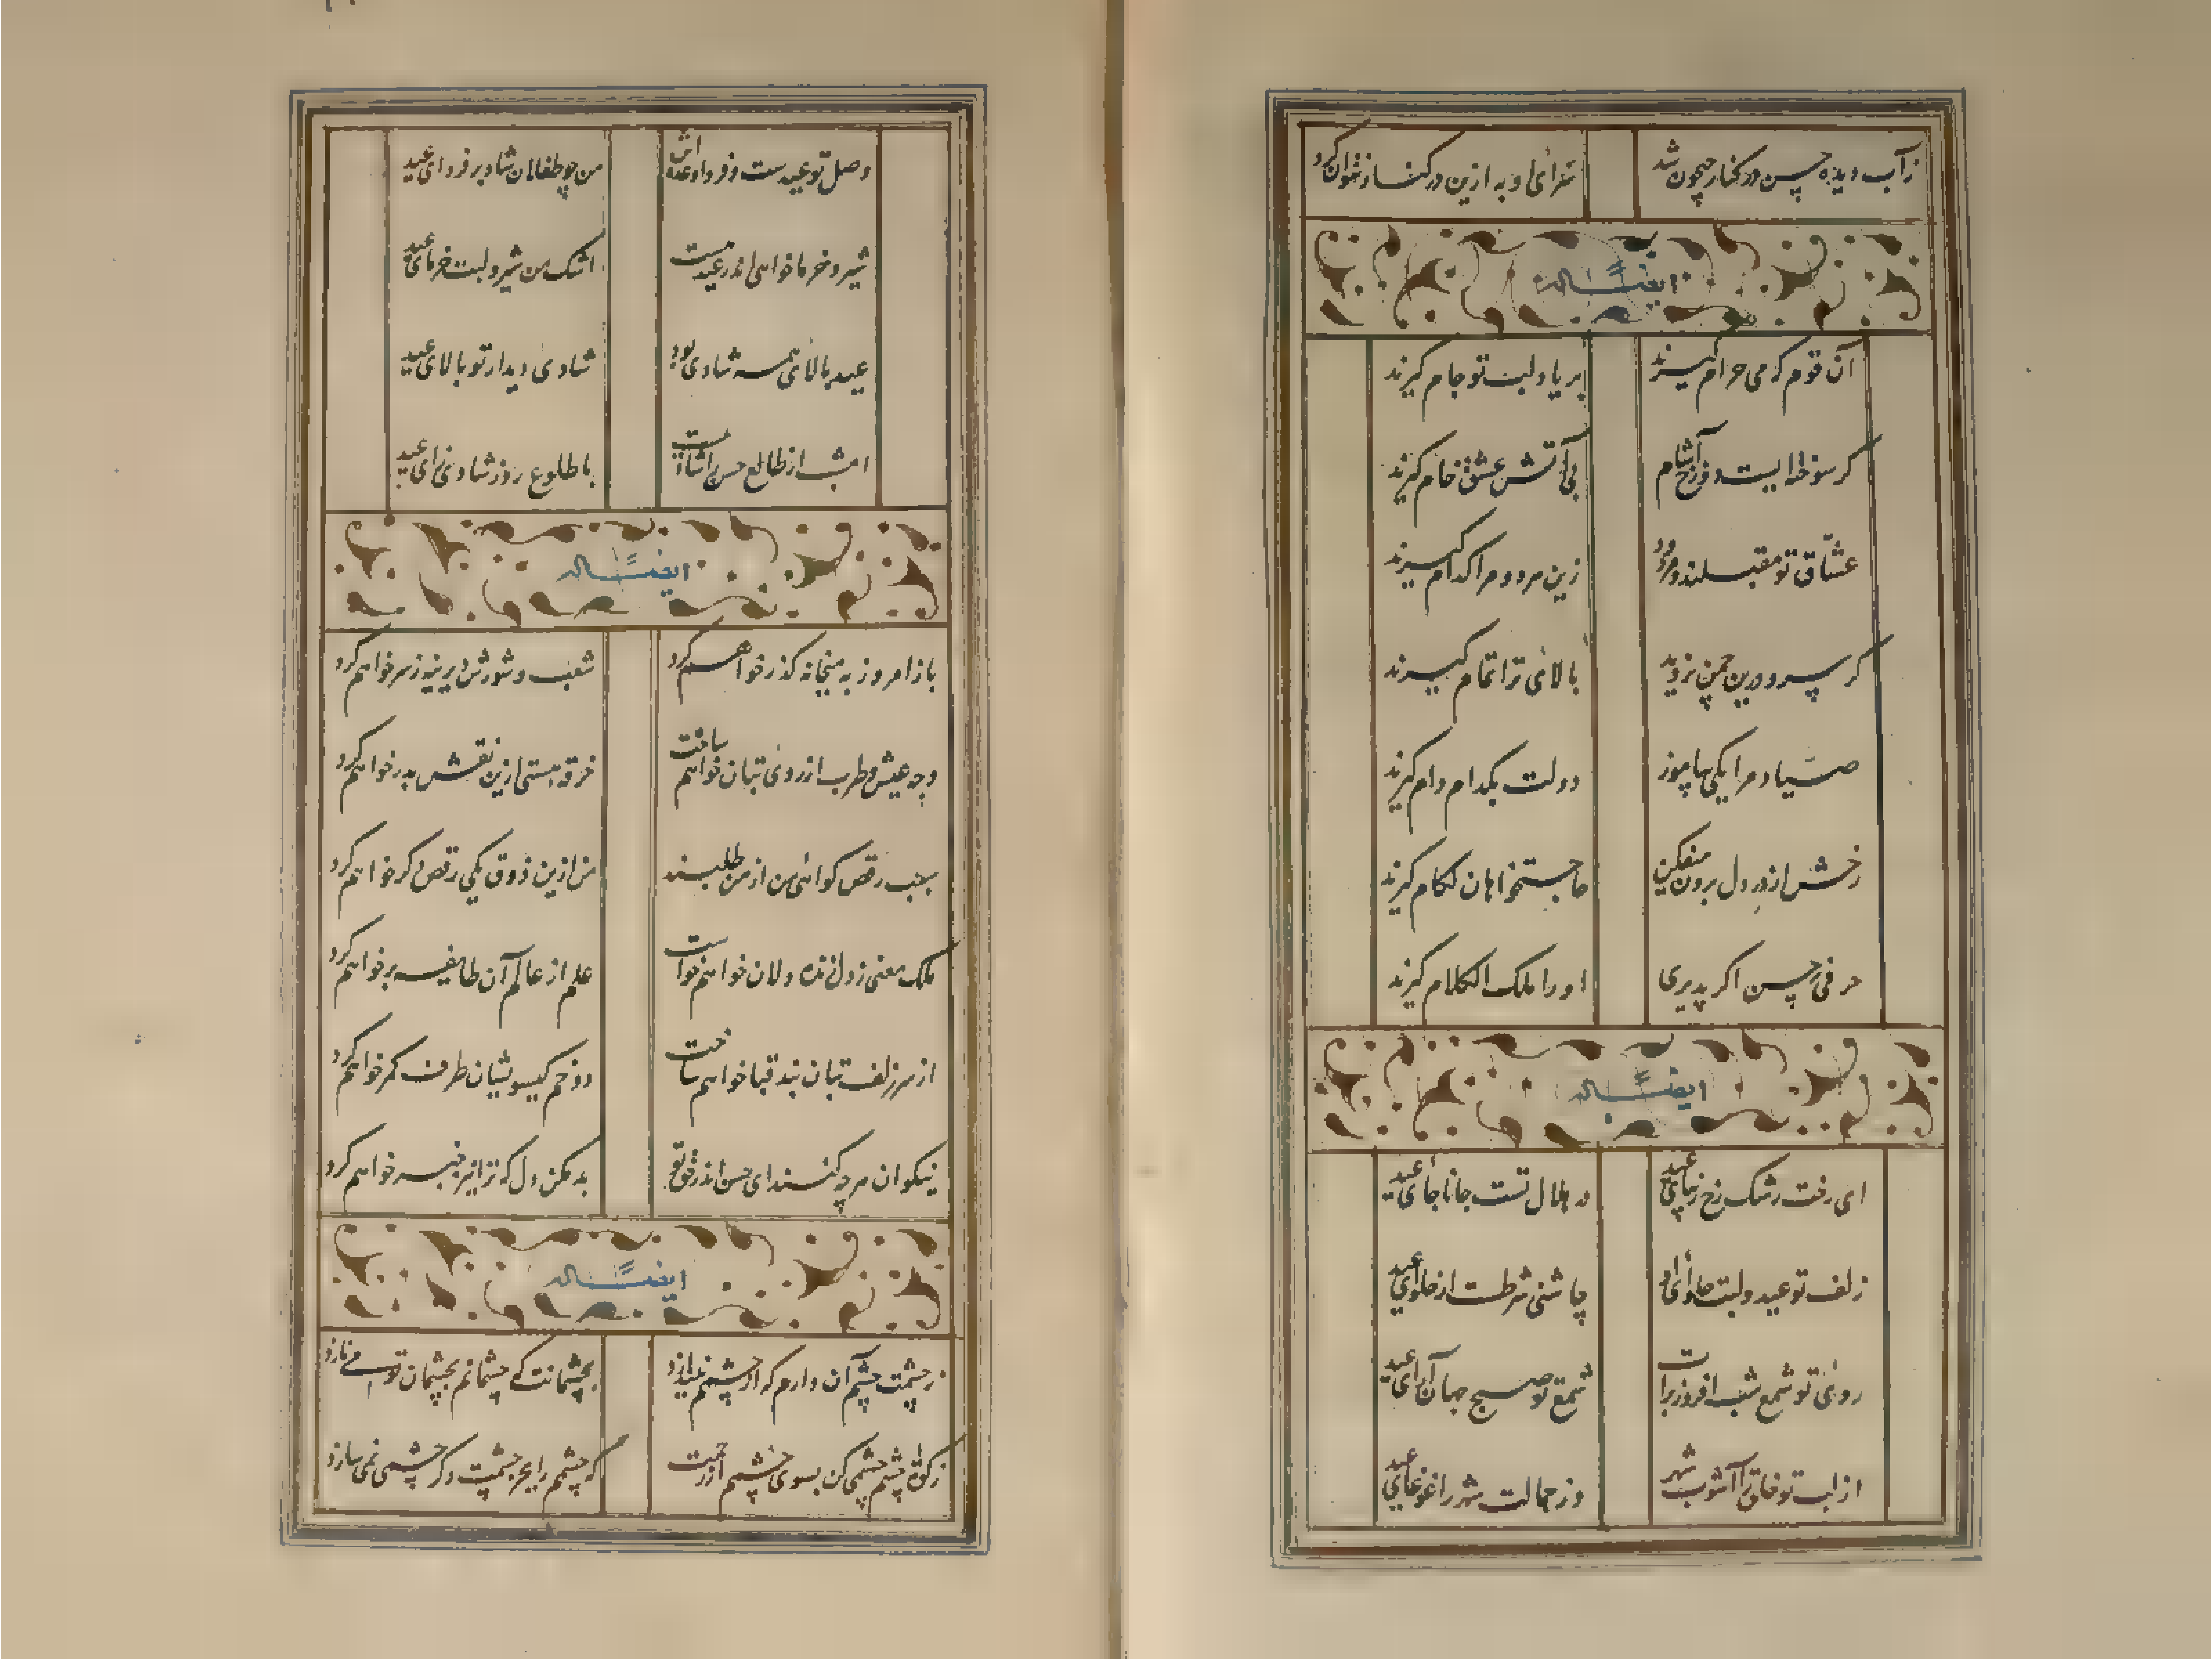 ز آب دیده حسن در کنار جیحون شد
سزای او به ازین در کنار نتوان کرد
ایضاً له
آن قوم که می حرام گیرند
بر یاد لبت تو جام گیرند
گر سوخته ایست دوزخ آشام
بی آتش عشق خام گیرند
عشاق تو مقبلند و مردود
زین هر دو مرا کدام گیرند
گر سرو درین چمن نروید
بالای ترا تمام گیرند
صیاد مرا یکی بیاموز
دولت بکدام دام گیرند
رخش از در دل برون میفکن
حاجتخواهان لکام گیرند
حرفی ز حسن اگر پذیری
او را ملک الکلام گیرند
ایضاً له
ای رخت رشک رخ زیبای عید
در هلال تست جانا جای عید
زلف تو عید و لبت حلوای او
چاشنی شرطست از حلوای عید
روی تو شمع شب افروز برات
شمع تو صبح جهان آرای عید
از لب تو فاق را آشوب شهر
وز جمالت شهر را غوغای عید
وصل تو عیدست و فردا وعده اش
من چو طفلان شاد بر فردای عید
شیر و خرما خواهی اندر عید هست
اشک من شیر و لبت خرمای عید
عید بالای همه شادی بود
شادی دیدار تو بالای عید
امشب از طالع حسن را شادیست
با طلوع روز شادی زای عید
ایضاً له
باز امروز به میخانه گذر خواهم کرد
شغب و شورش دیرینه ز سر خواهم کرد
وجه عیش و طرب از روی بتان خواهم ساخت
خرقه هستی ازین نقش بدر خواهم کرد
بجب رقص گواهی من از من طلبند
من ازین ذوق یکی رقص دگر خواهم کرد
ملک معنی ز دل زنده دلان خواهم خواست
علم از عالم آن طایفه بر خواهم کرد
از سر زلف بتان بند قبا خواهم ساخت
وز خم گیسویشان طرف کمر خواهم کرد
نیکوان هر چه کنند ای حسن اندر حق تو
بد مکن دل که ترا نیز خبر خواهم کرد
ایضاً له
ز چشمت چشم آن دارم که از چشمم نیندازد
بچشمانت که چشمانم بچشمان تو می نازد
زکوة چشم چشمی کن بسوی چشمم از رحمت
که چشمم را بجز چشمت دگر چشمی نمی سازد